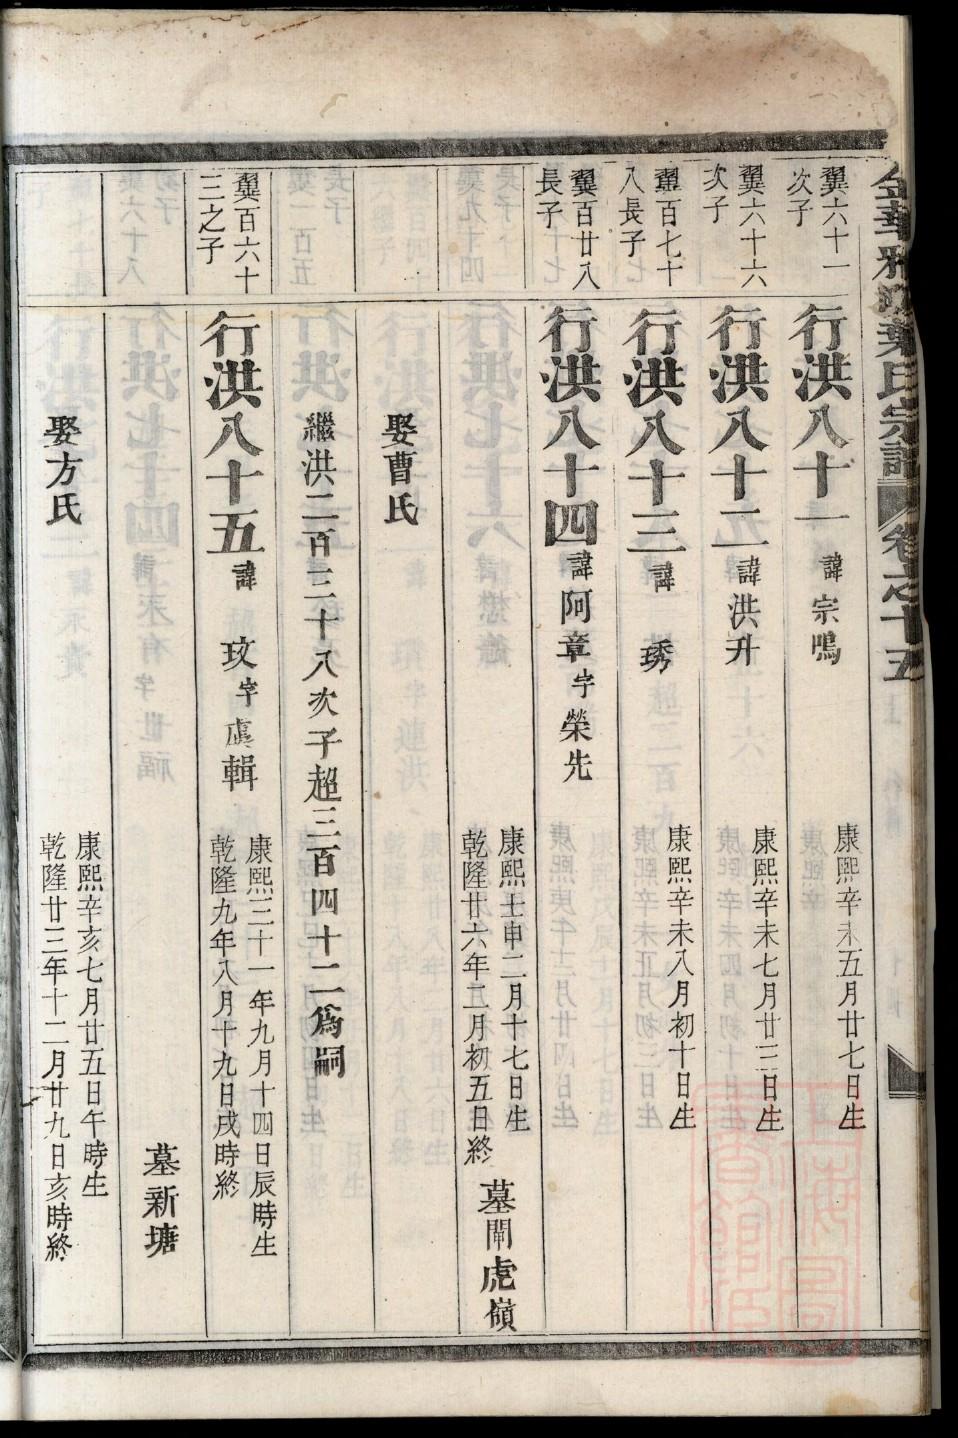 葉氏宗譜 卷之十五
翼六十一
次子
行洪八十一 諱 宗鳴
康熙辛未五月廿七日生
翼六十六
次子
行洪八十二 諱 洪升
康熙辛未七月廿三日生
翼百七十
八長子
行洪八十三 諱 琇
康熙辛未八月初十日生
翼百廿八
長子
行洪八十四 諱 阿章 字 榮先
康熙壬申二月十七日生
乾隆廿六年二月初五日終
墓閘虎嶺
娶曹氏
繼洪二百三十八次子超三百四十二為嗣
翼百六十
三之子
行洪八十五 諱 玟 字 虞輯
康熙三十一年九月十四日辰時生
乾隆九年八月十九日戌時終
墓新塘
娶方氏
康熙辛亥七月廿五日午時生
乾隆廿三年十二月廿九日亥時終